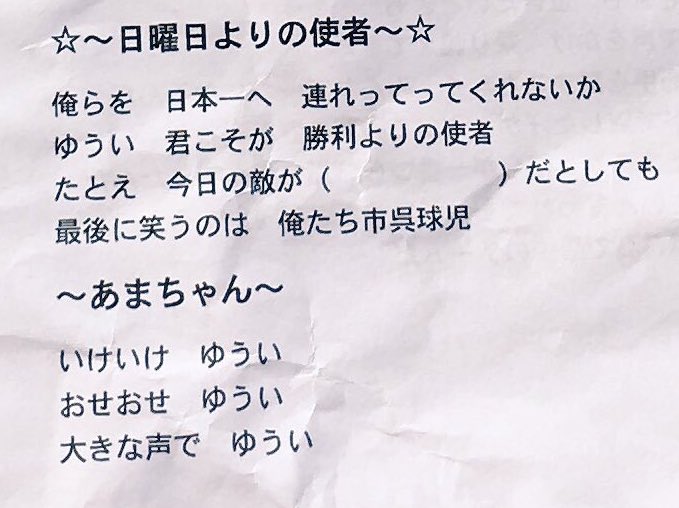 ☆~日曜日よりの使者~☆
俺らを　日本一へ　連れってってくれないか
ゆうい　君こそが　勝利よりの使者
たとえ　今日の敵が（　　　　　　　）だとしても
最後に笑うのは　俺たち市呉球児
~あまちゃん~
いけいけ　ゆうい
おせおせ　ゆうい
大きな声で　ゆうい